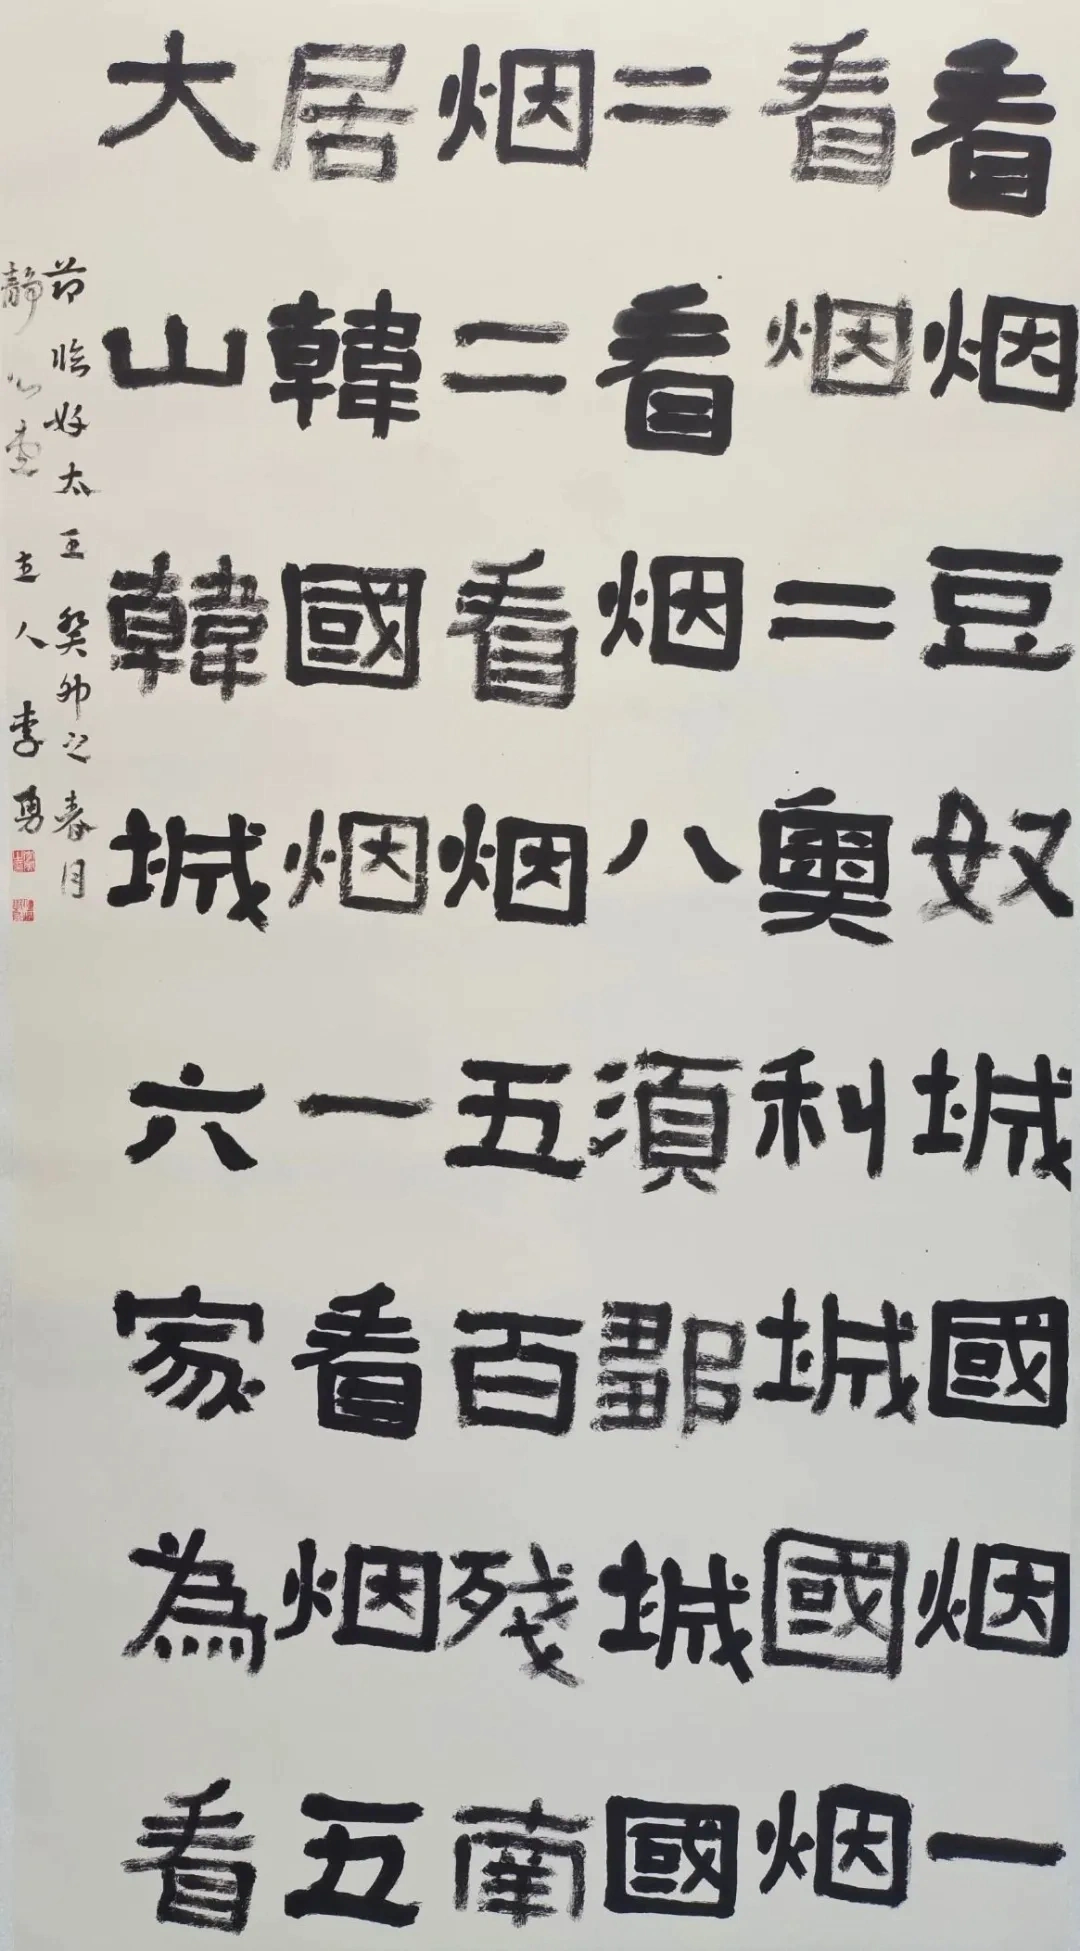 看烟豆奴城國烟一
看烟二奧利城國烟
二看烟八須鄒城國
烟二看烟五百殘南
居韓國烟一看烟五
大山韓城六家為看
節臨好太王癸卯之春月
靜心齋主人李勇